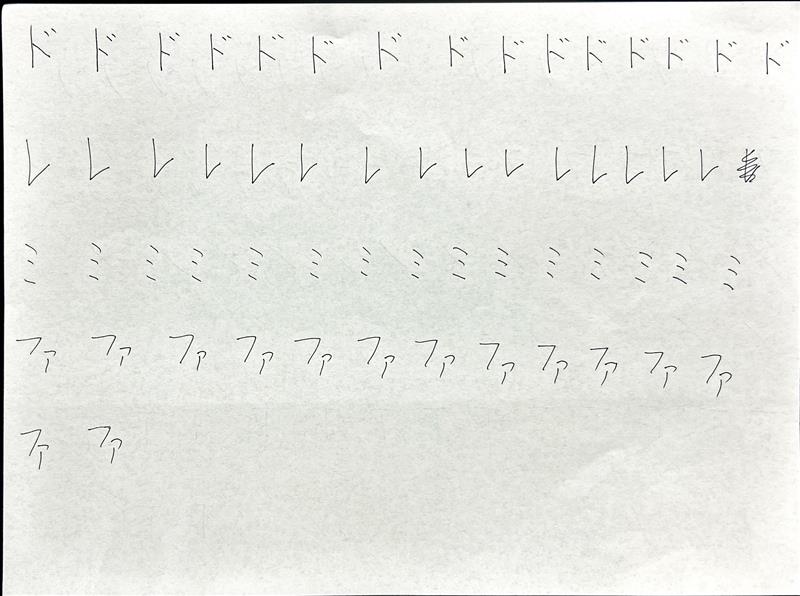 ド ド ド ド ド ド ド ド ド ド ド ド ド ド ド
レ レ レ レ レ レ レ レ レ レ レ レ レ レ レ
ミ ミ ミ ミ ミ ミ ミ ミ ミ ミ ミ ミ ミ ミ ミ
ファ ファ ファ ファ ファ ファ ファ ファ ファ ファ ファ ファ
ファ ファ